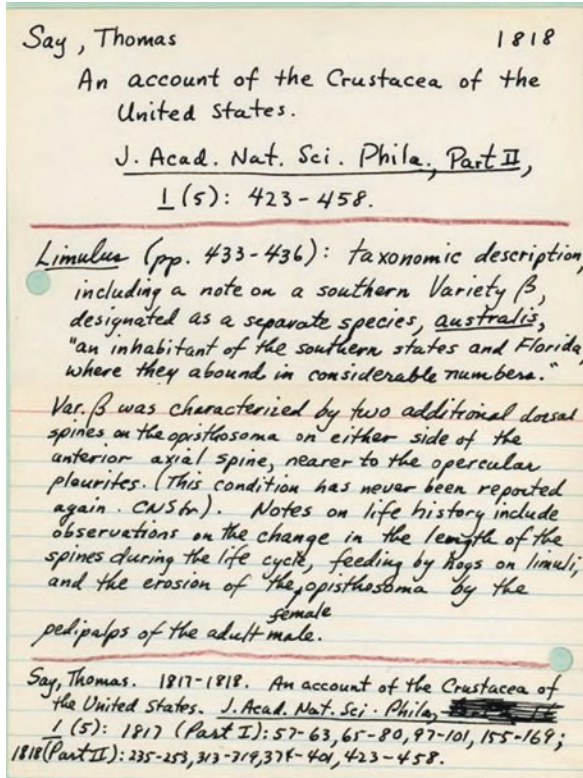 Say, Thomas 1818
An account of the Crustacea of the
United States.
J. Acad. Nat. Sci. Phila., Part II,
1 (5): 423-458.
Limulus (pp. 433-436): taxonomic description,
including a note on a southern Variety β,
designated as a separate species, australis,
"an inhabitant of the southern states and Florida,
where they abound in considerable numbers."
Var. β was characterized by two additional dorsal
spines on the opisthosoma on either side of the
anterior axial spine, nearer to the opercular
pleurites. (This condition has never been reported
again. CNSbr). Notes on life history include
observations on the change in the length of the
spines during the life cycle, feeding by hogs on limuli,
and the erosion of the female opisthosoma by the
pedipalps of the adult male.
Say, Thomas. 1817-1818. An account of the Crustacea of
the United States. J. Acad. Nat. Sci. Phila,
1 (5): 1817 (Part I): 57-63, 65-80, 97-101, 155-169;
1818 (Part II): 235-253, 313-319, 374-401, 423-458.